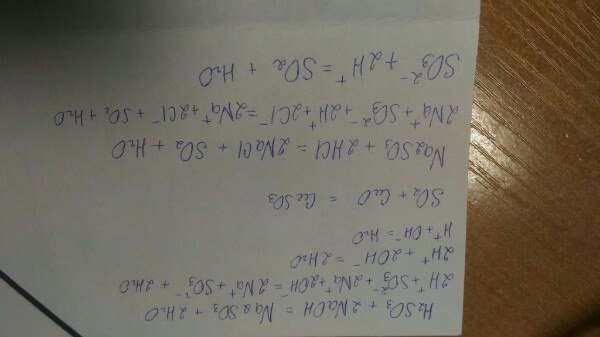 H₂SO₃ + 2NaOH = Na₂SO₃ + 2H₂O
2H⁺ + SO₃²⁻ + 2Na⁺ + 2OH⁻ = 2Na⁺ + SO₃²⁻ + 2H₂O
2H⁺ + 2OH⁻ = 2H₂O
H⁺ + OH⁻ = H₂O
SO₂ + Cu₂O = Cu₂SO₃
Na₂SO₃ + 2HCl = 2NaCl + SO₂ + H₂O
2Na⁺ + SO₃²⁻ + 2H⁺ + 2Cl⁻ = 2Na⁺ + 2Cl⁻ + SO₂ + H₂O
SO₃²⁻ + 2H⁺ = SO₂ + H₂O